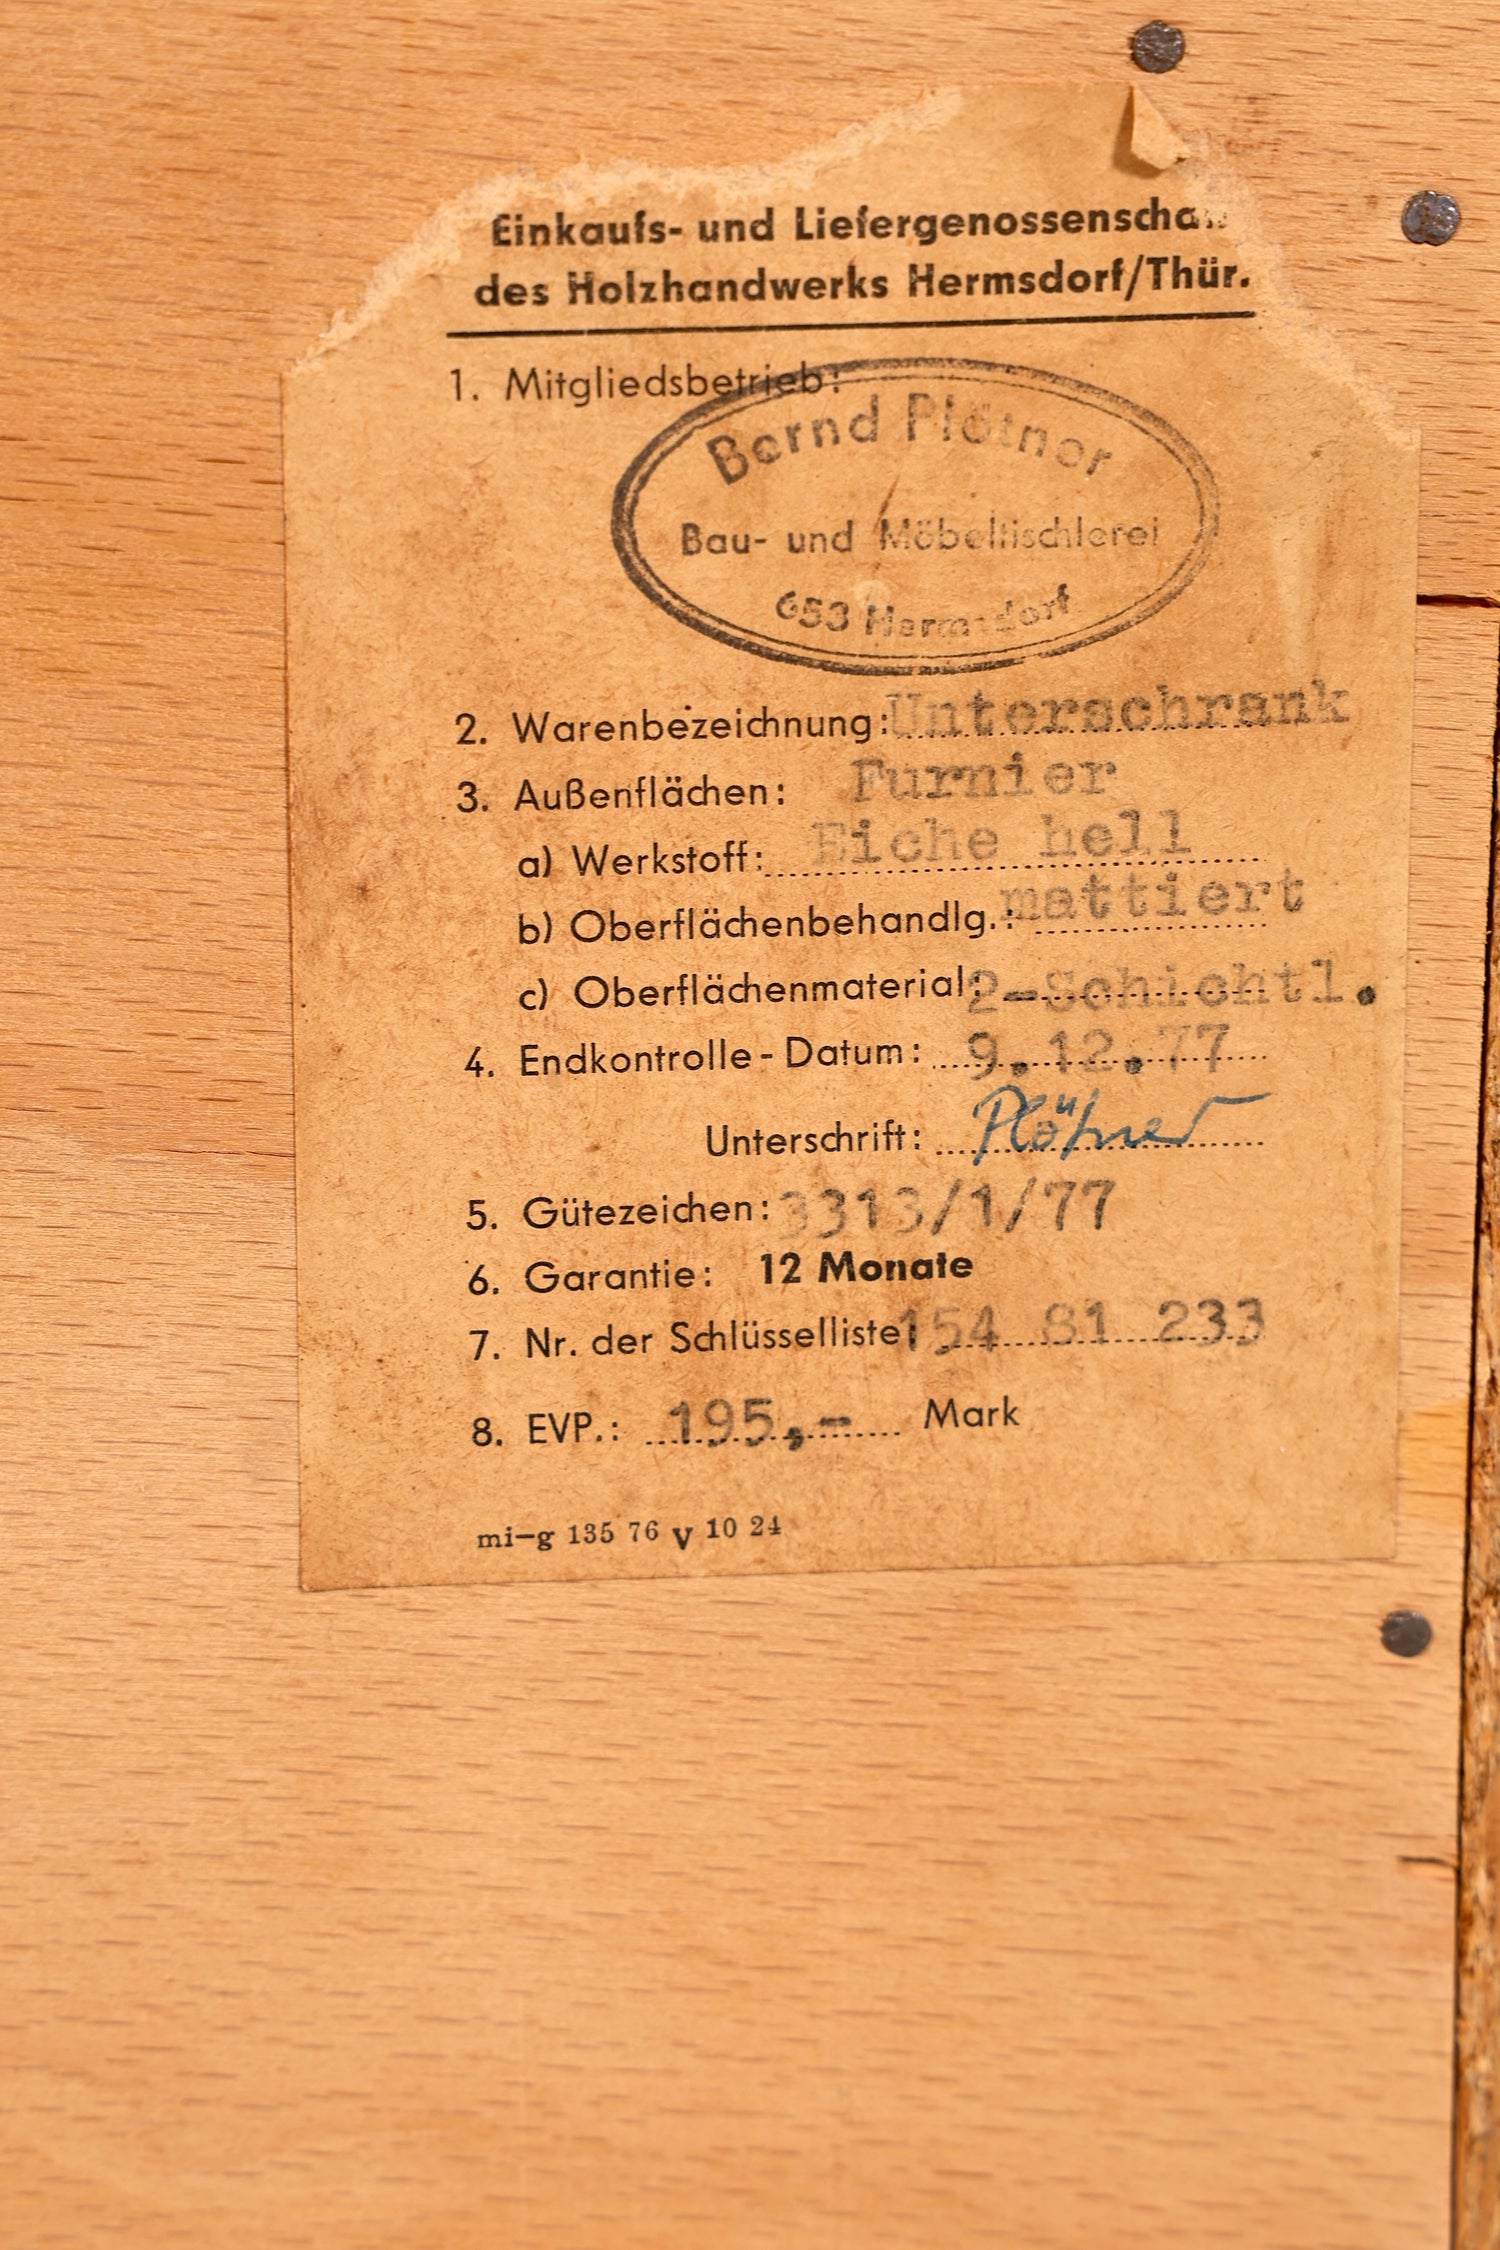 Einkaufs- und Liefergenossenscha
des Holzhandwerks Hermsdorf/Thür.
1. Mitgliedsbetrieb:
Bernd Plötner
Bau- und Möbeltischlerei
653 Hermsdorf
2. Warenbezeichnung: Unterschrank
3. Außenflächen: Furnier
a) Werkstoff: Eiche hell
b) Oberflächenbehandlg.: mattiert
c) Oberflächenmaterial: 2-Schichtl.
4. Endkontrolle-Datum: 9.12.77
Unterschrift: Plötner
5. Gütezeichen: 3313/1/77
6. Garantie: 12 Monate
7. Nr. der Schlüsselliste: 154 81 233
8. EVP.: 195,- Mark
mi-g 135 76 V 10 24